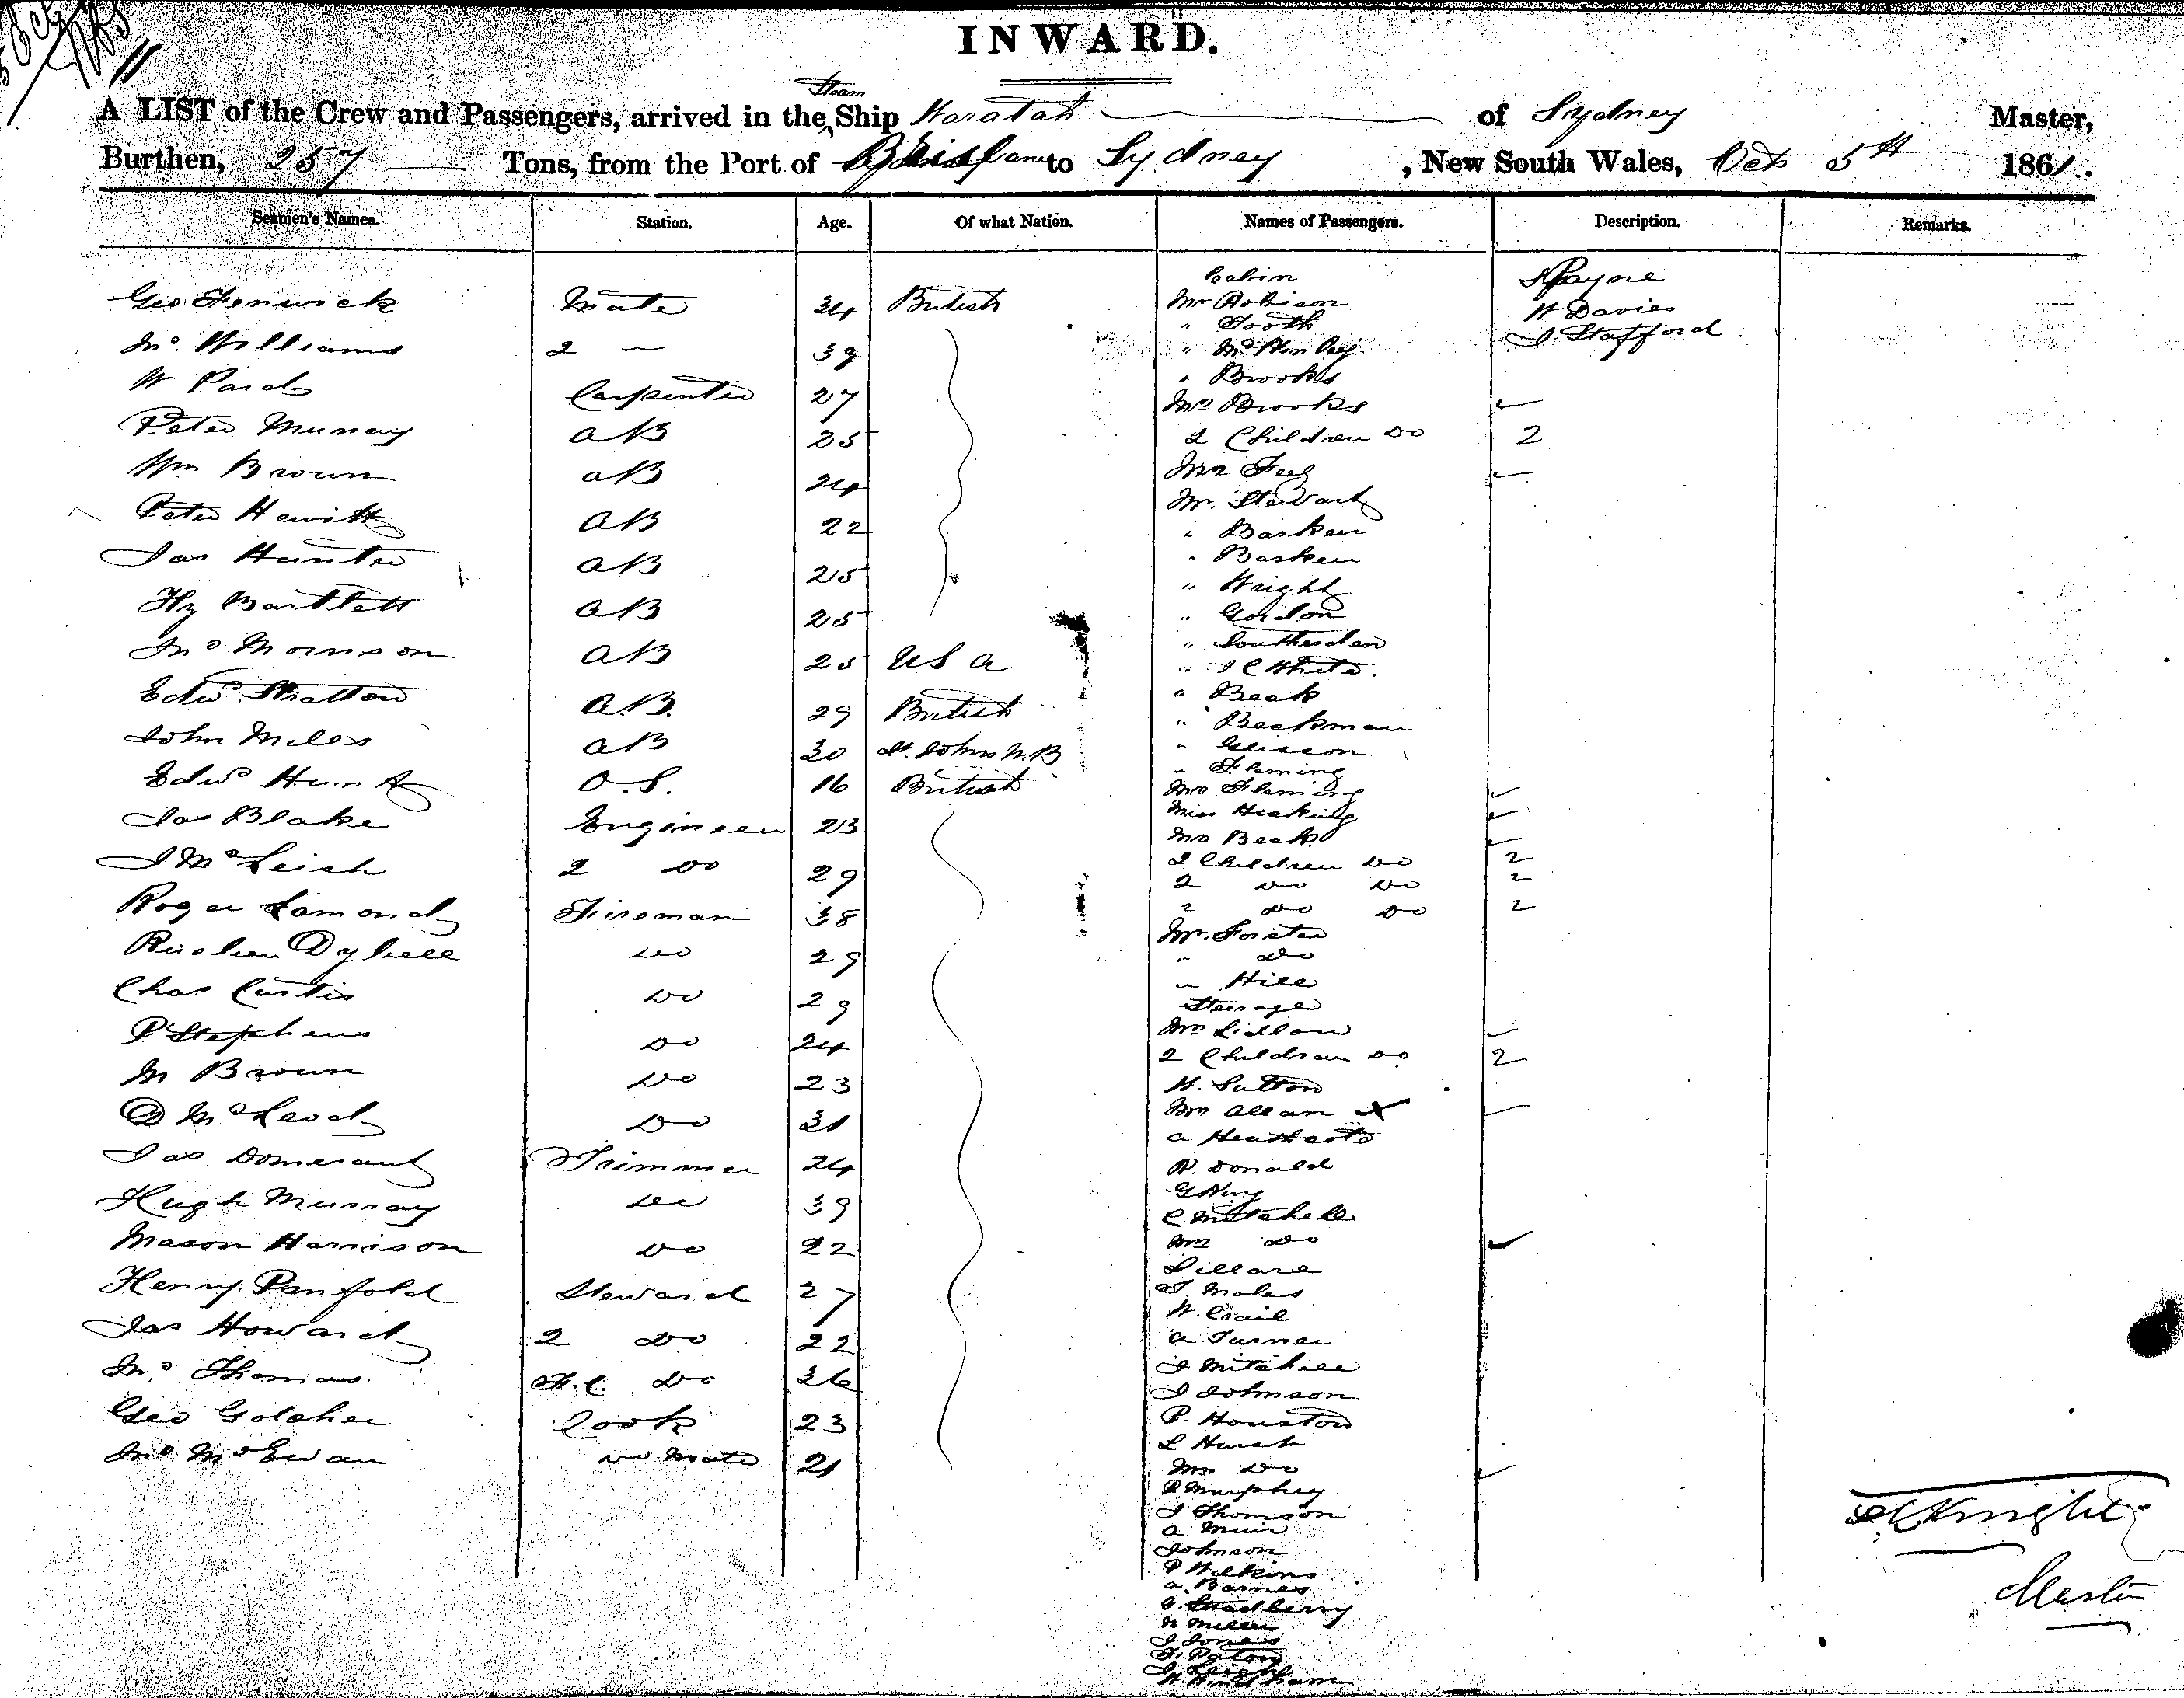 INWARD.
Steam
A LIST of the Crew and Passengers, arrived in the Ship Waratah of Sydney Master,
Burthen, 257 Tons, from the Port of Brisbane to Sydney, New South Wales, Oct 5th 1861.
Seamen's Names. Station. Age. Of what Nation. Names of Passengers. Description. Remarks.
Geo Fenwick Mate 34 British
Jno. Williams 2 " 39
W Pard Carpenter 27
Peter Murray AB 25
Wm Brown AB 24
Peter Hewitt AB 22
Jas Hunter AB 25
Hy Bartlett AB 25
Jno Morrison AB 25 USA
Edwd Stratton A.B. 29 British
John Miles AB 30 St. Johns N.B
Edwd Hunt O.S. 16 British
Jas Blake Engineer 23
J McLeish 2 Do 29
Roger Lamond Fireman 38
Reuben Dybell Do 29
Chas Curtis Do 29
P Stephens Do 24
M Brown Do 23
D McLeod Do 31
Jas Domerant Trimmer 24
Hugh Murray Do 39
Mason Harrison Do 22
Henry Penfold Steward 27
Jas Howard 2 Do 22
Jno. Thomas F.C. Do 36
Geo Golcher Cook 23
Jno McEwan Do Mate 21
Cabin
Mr Robison
" Tooth
" 
" Brooks
Mrs Brooks
2 Children Do 2
Mrs
Mr. Stewart
" Barker
" Barker
" Wright
" Gordon
" Southerden
" J C White.
" Beak
" Beekman
" Glisson
" Fleming
Mrs Fleming
Miss Hosking
Mrs Beak
2 Children Do 2
2 Do Do 2
2 Do Do 2
Mr. Forster
" Do
" Hill
Steerage
Mrs Lidlow
2 Children Do 2
H. Sutton
Mrs Allan X
A
R. Donald
G King
C Mitchell
Mrs Do
Lillare
J. Moles
W. Crail
A Turner
J Mitchell
J Johnson
P. Houston
L Hurst
Mrs Do
P Murphey
J Thomson
A Muir
Johnson
P Wilkins
A. Barnes
G. Bradberry
N Miller
J Jones
F. Paton
J. Leigh
W.
J Payne
W Davies
J Stafford
Knight
Master